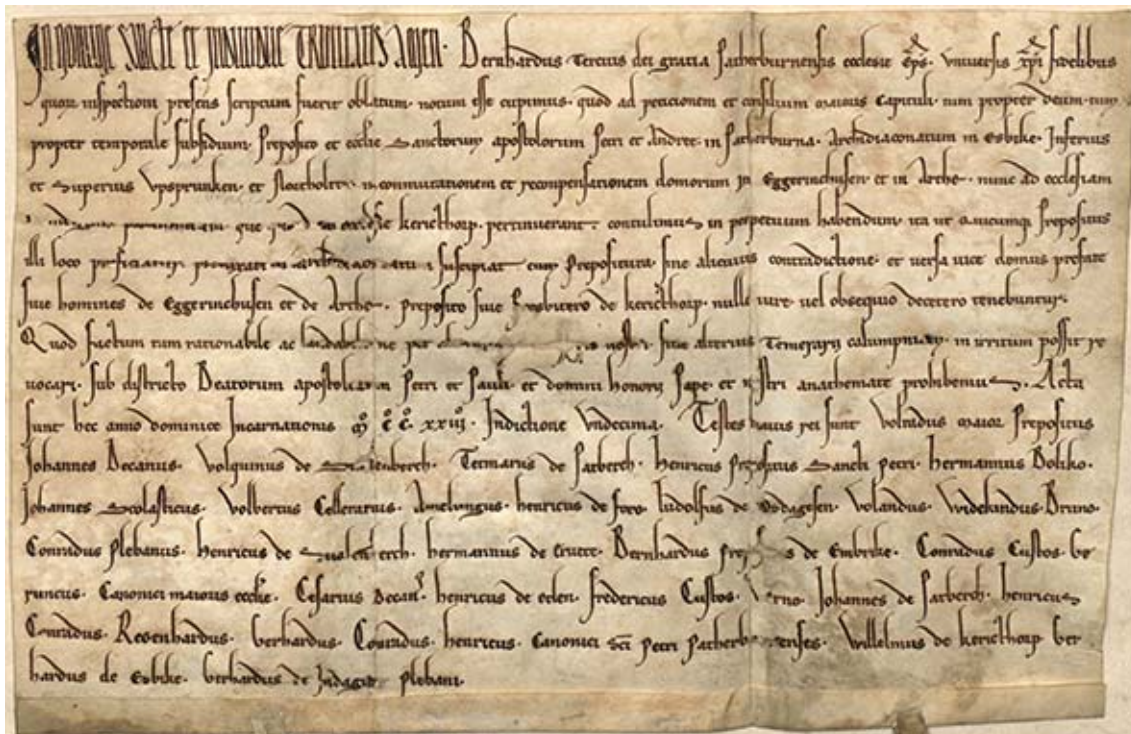 IN NOMINE SANCTE ET INDIVIDUE TRINITATIS AMEN. Bernhardus Tercius dei gratia Patherburnensis ecclesie eps. Universis xpi fidelibus
quorum inspectioni presens scriptum fuerit oblatum. notum esse cupimus. quod ad peticionem et consilium maioris Capituli. tum propter deum. tum
propter temporale subsidium. Preposito et ecclie Sanctorum apostolorum Petri et Andree in Patherburna. Archidiaconatum in Esbike. Inferius
et Superius Upsprunken. et in conmutationem et recompensationem domorum in Eggerinchusen et in Arche. nunc ad ecclesiam
que kericthorp. pertinuerant contulimus in perpetuum habendum. ita ut quicumq Prepositus
illi loco suscipiat cum Prepositura. sine alicuius contradictione. et versa vice domus prefate
sive homines de Eggerinchusen et de Arche. preposito sive kericthorp. nullo iure. vel obsequio decetero tenebuntur.
Quod factum tam rationabile ac ne per nostri. sive alterius Temerarii calumpniam. in irritum possit re
vocari. sub districto Beatorum apostolorum Petri et Pauli. et domini honorii Pape. et nostri anathemate prohibemus. Acta
sunt hec anno dominice Incarnationis M CC XXIII. Indictione Undecima. Testes huius rei sunt Volradus maior Prepositus
Johannes Decanus. Volquinus de Tetmarus de Patberch. Henricus Prepositus Sancti Petri. hermannus
Johannes Scolasticus. Volbertus Cellerarius. Amelungus. henricus de foro. Ludolfus de Volandus. Widekindus. Bruno.
Conradus Plebanus. Henricus de hermannus de Bernhardus de Embrike. Conradus Custos. Ge
runcus. Canonici maioris ecclie. Cesarius Decan. henricus de eden. fredericus Custos. Johannes de Patberch. henricus
Conradus. Reinhardus. Gerhardus. Conradus. henricus. Canonici sci Petri Willelmus de kericthorp Ger
hardus de Esbike. Gerhardus de Indagine Plebani.